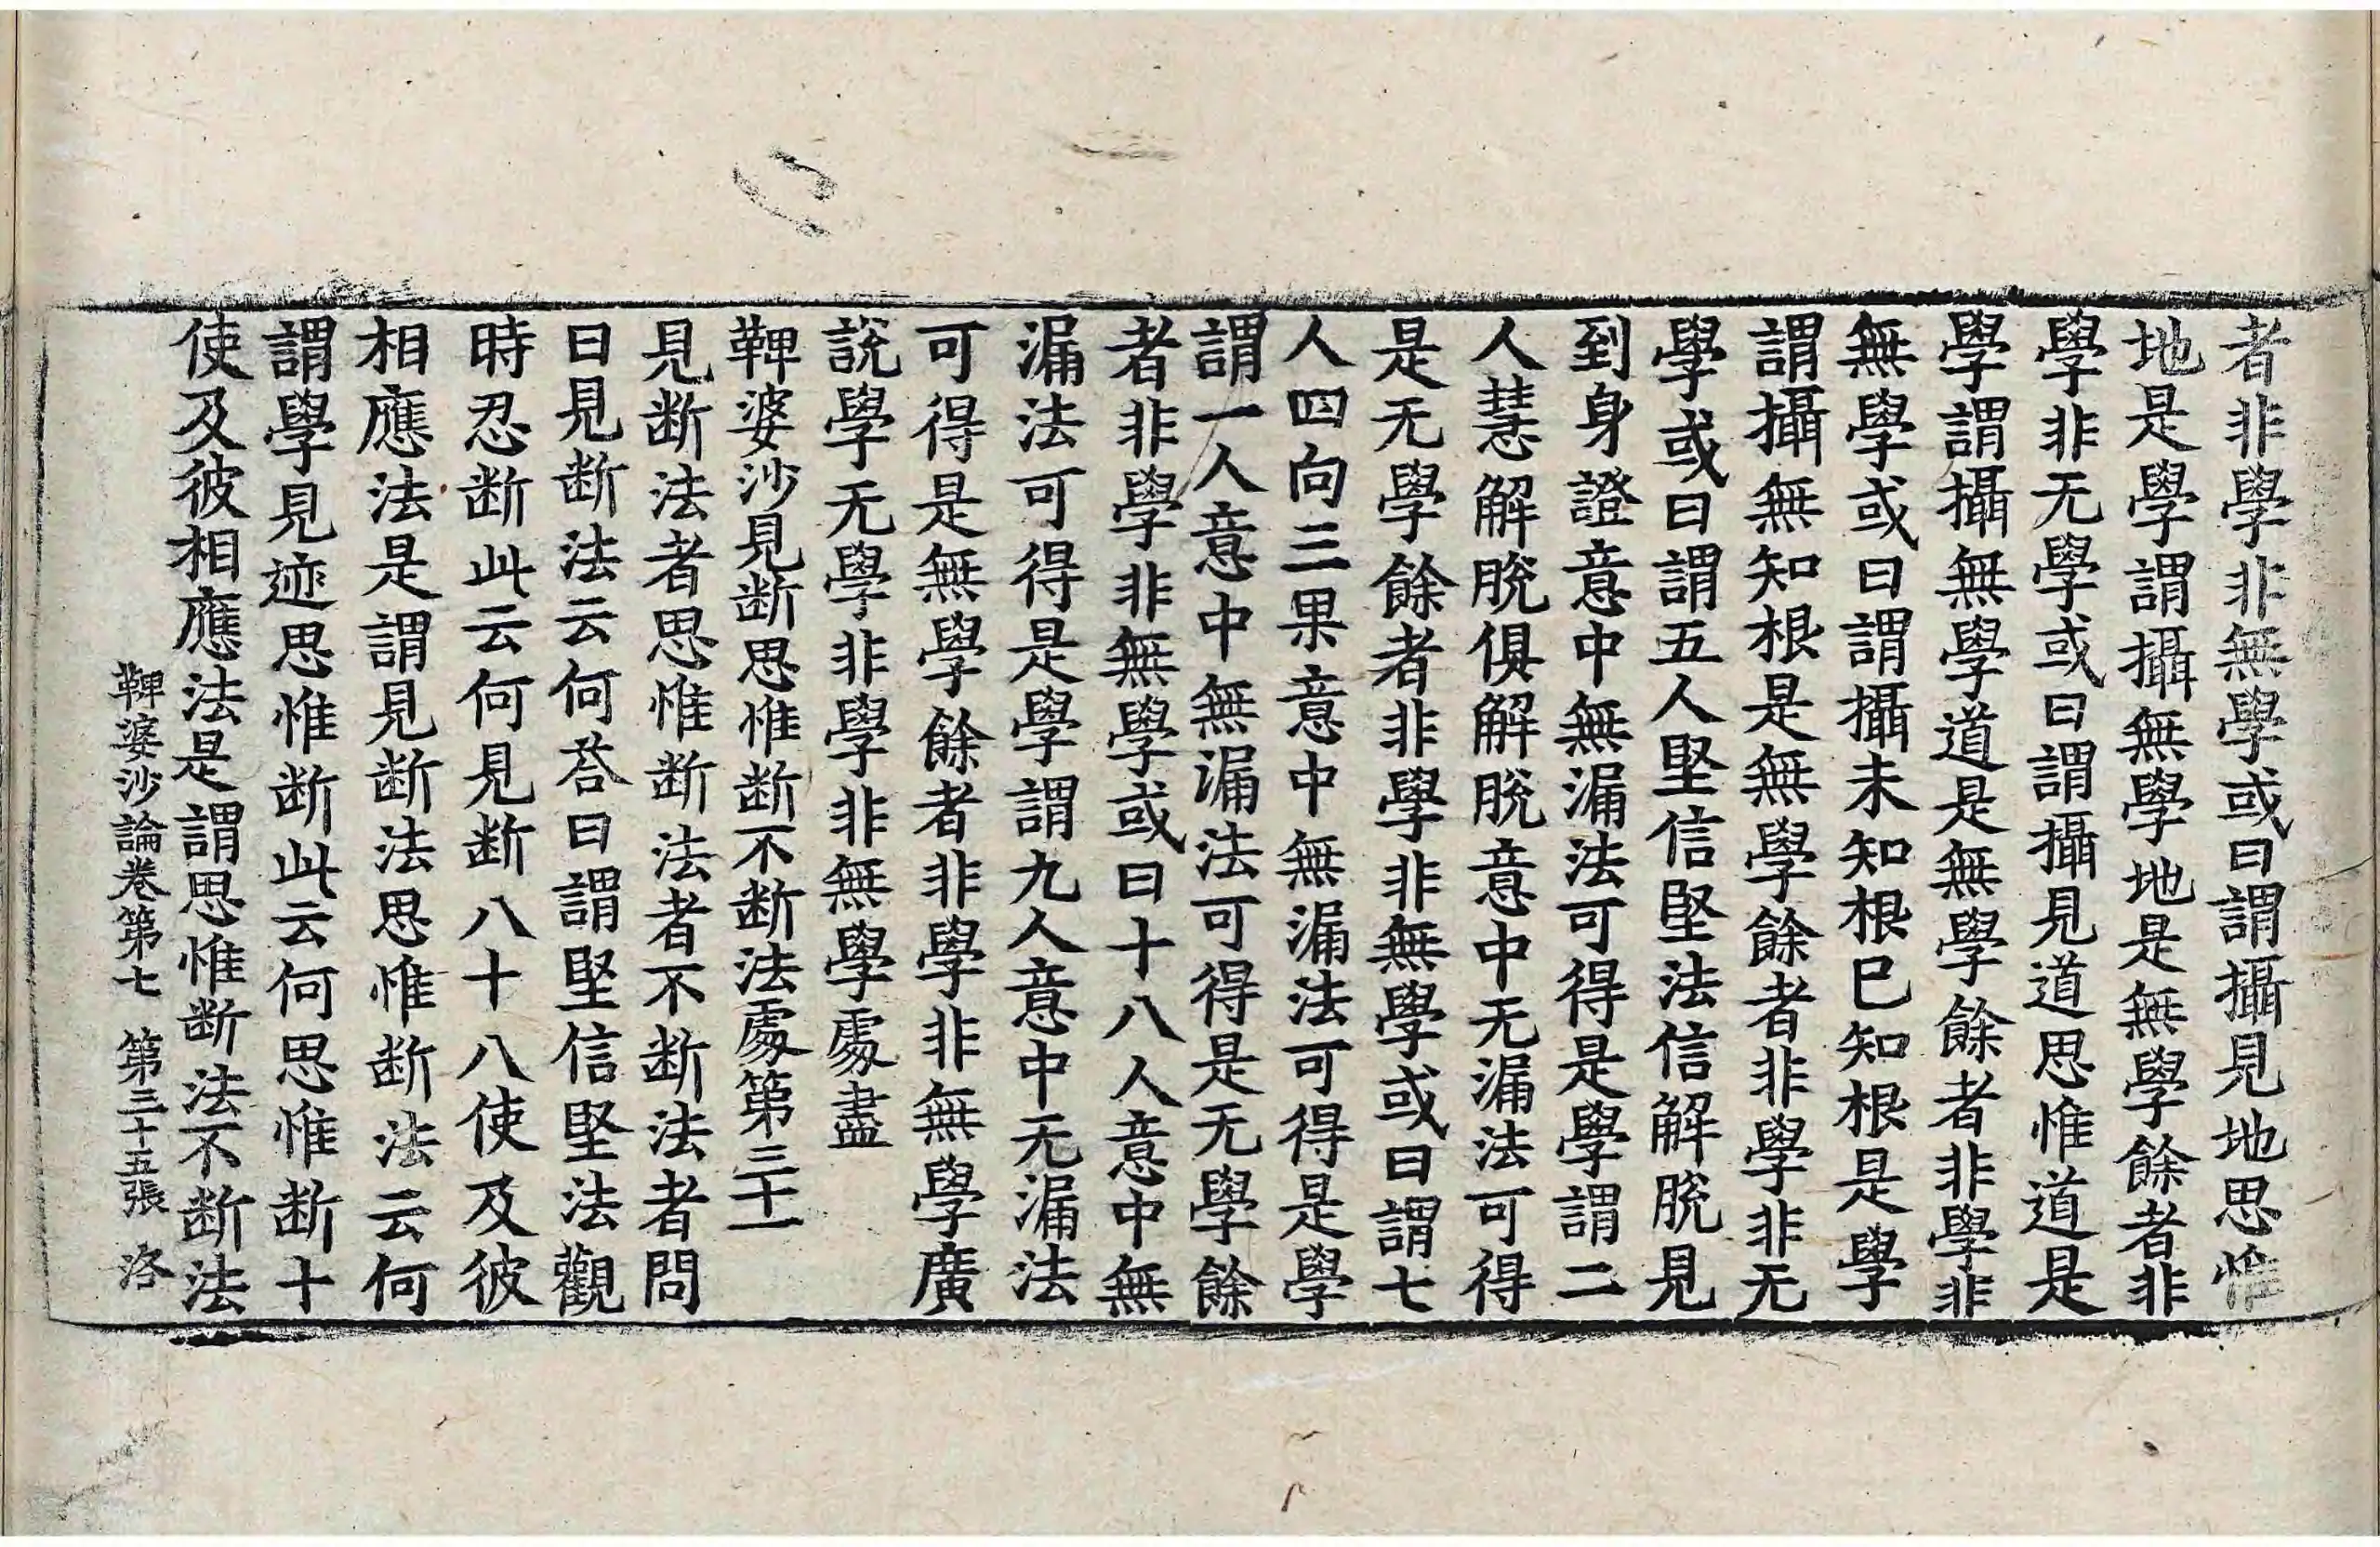 者非學非無學或曰謂攝見地思惟
地是學謂攝無學地是無學餘者非
學非无學或曰謂攝見道思惟道是
學謂攝無學道是無學餘者非學非
無學或曰謂攝未知根已知根是學
謂攝無知根是無學餘者非學非无
學或曰謂五人堅信堅法信解脫見
到身證意中無漏法可得是學謂二
人慧解脫俱解脫意中无漏法可得
是无學餘者非學非無學或曰謂七
人四向三果意中無漏法可得是學
謂一人意中無漏法可得是无學餘
者非學非無學或曰十八人意中無
漏法可得是學謂九人意中无漏法
可得是無學餘者非學非無學廣
說學无學非學非無學處盡
鞞婆沙見断思惟断不断法處第三十一
見断法者思惟断法者不断法者問
曰見断法云何荅曰謂堅信堅法觀
時忍断此云何見断八十八使及彼
相應法是謂見断法思惟断法云何
謂學見迹思惟断此云何思惟断十
使及彼相應法是謂思惟断法不断法
鞞婆沙論卷第七 第三十五張 洛